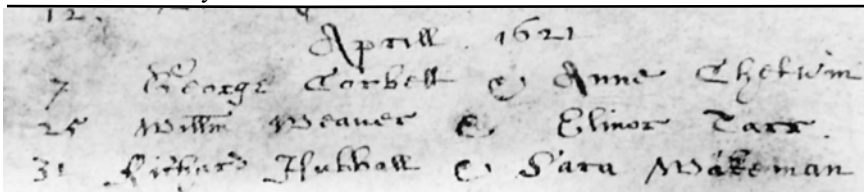 12.
Aprill 1621
7 George Corbett & Anne Chetwin
25 Willm Weaver & Elinor Tarr.
31 Richard Hubball & Sara Wakeman